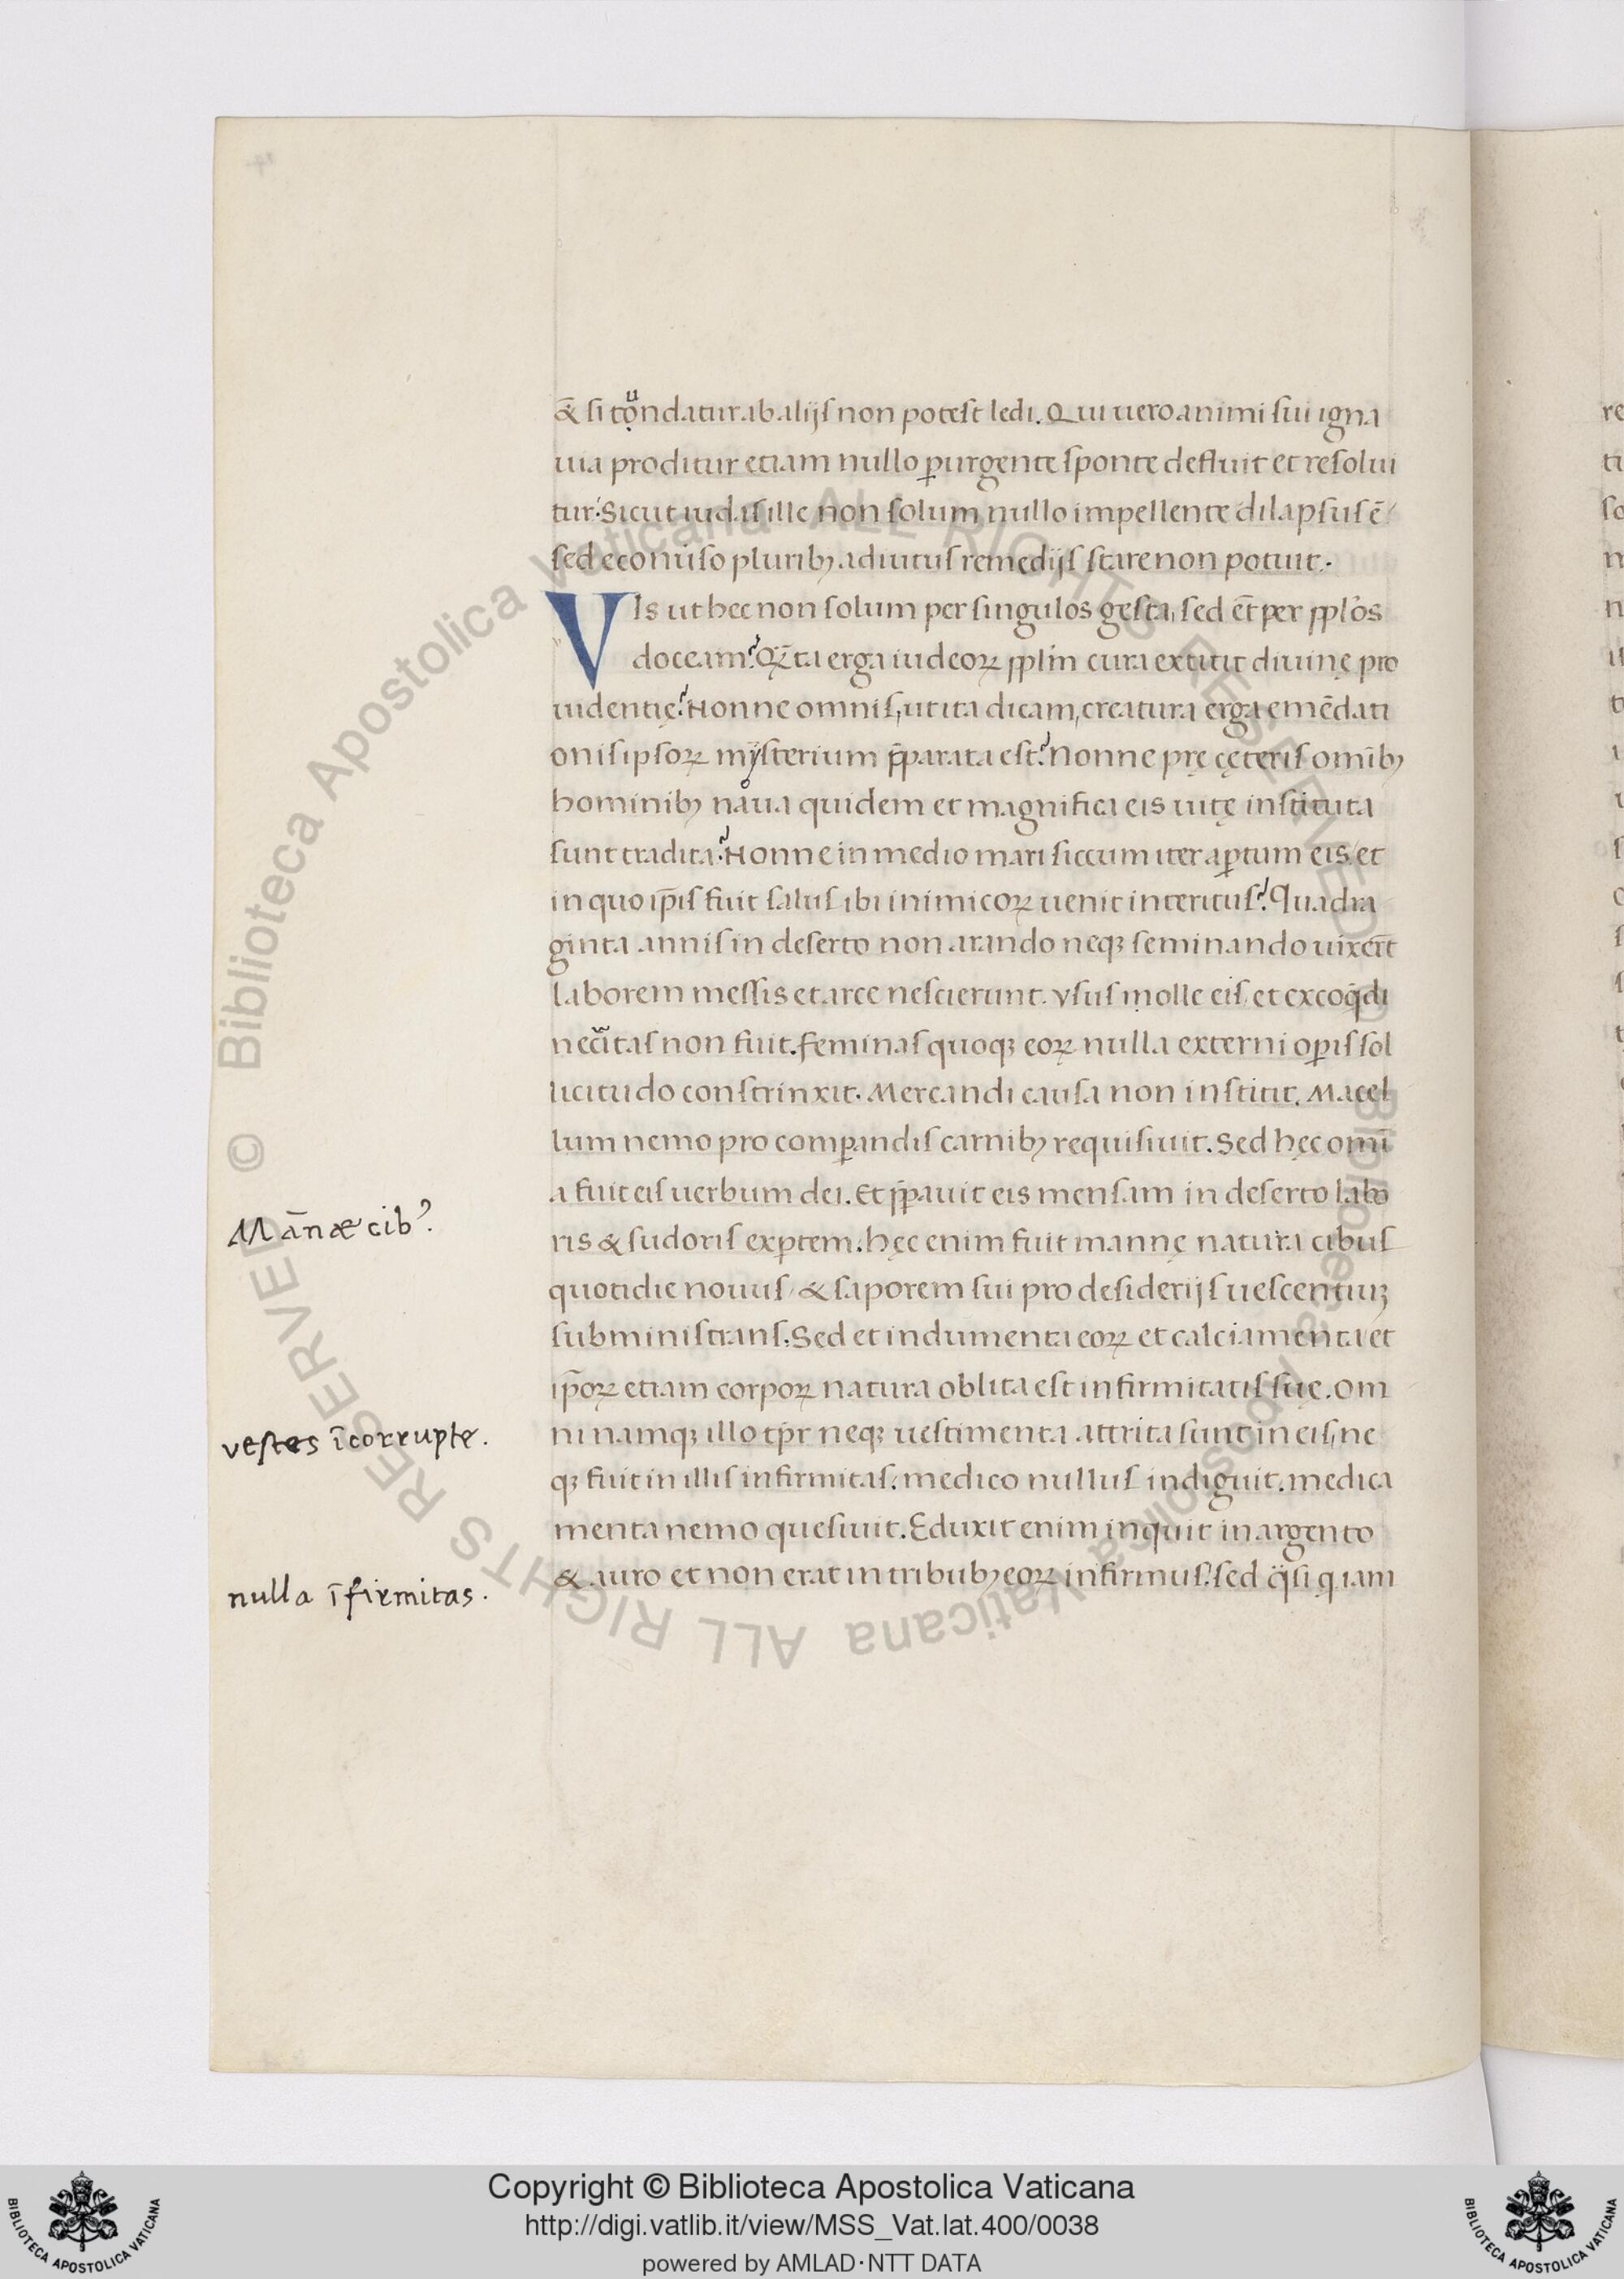 & si tondatur ab alijs non potest ledi. Qui uero animi sui igna
uia proditur etiam nullo ꝑurgente sponte defluit et resolui
tur. Sicut iudas ille non solum nullo impellente dilapsus ē
sed econúso pluribꝫ adiutus remedijs stare non potuit.
VIs ut hec non solum per singulos gesta, sed ēt per pplos
doceam? Qͣ̄ta erga iudeoꝝ pplm̄ cura extitit diuinę pro
uidentię? Nonne omnis, ut ita dicam, creatura erga emēdati
onis ipsoꝝ mysterium p̄parata est? Nonne prę cęteris omībꝫ
hominibꝫ naua quidem et magnifica eis uitę instituta
sunt tradita? Nonne in medio mari siccum iter aꝑtum eis et
in quo ip̄is fuit salus ibi inimicoꝝ uenit interitus? Quadra
ginta annis in deserto non arando neqꝫ seminando uixerūt
laborem messis et aree nescierunt. vsus molle eis, et excoq̄di
necītas non fuit. feminas quoqꝫ eoꝝ nulla externi oꝑis sol
licitudo constrinxit. Mercandi causa non institit. Macel
lum nemo pro comꝑandis carnibꝫ requisiuit. Sed hęc omī
a fuit eis uerbum dei. Et p̄pauit eis mensam in deserto labo
ris & sudoris exꝑtem. hęc enim fuit mannę natura cibus
quotidie nouus / & saporem sui pro desiderijs uescentiuꝫ
subministrans. Sed et indumenta eoꝝ et calciamenta et
ip̄oꝝ etiam corpoꝝ natura oblita est infirmitatis suę. Om
ni namqꝫ illo tp̄r neqꝫ uestimenta attrita sunt in eis, ne
qꝫ fuit in illis infirmitas. medico nullus indiguit. medica
menta nemo quesiuit. Eduxit enim inquit in argento
& auro et non erat in tribubꝫ eoꝝ infirmus. sed qͣsi q iam
Mānæ cibꝰ.
vestes īcorrupte.
nulla īfirmitas.
© Biblioteca Apostolica Vaticana ALL RIGHTS RESERVED
© Biblioteca Apostolica Vaticana ALL RIGHTS RESERVED
BIBLIOTECA APOSTOLICA VATICANA
Copyright © Biblioteca Apostolica Vaticana
http://digi.vatlib.it/view/MSS_Vat.lat.400/0038
powered by AMLAD·NTT DATA
BIBLIOTECA APOSTOLICA VATICANA